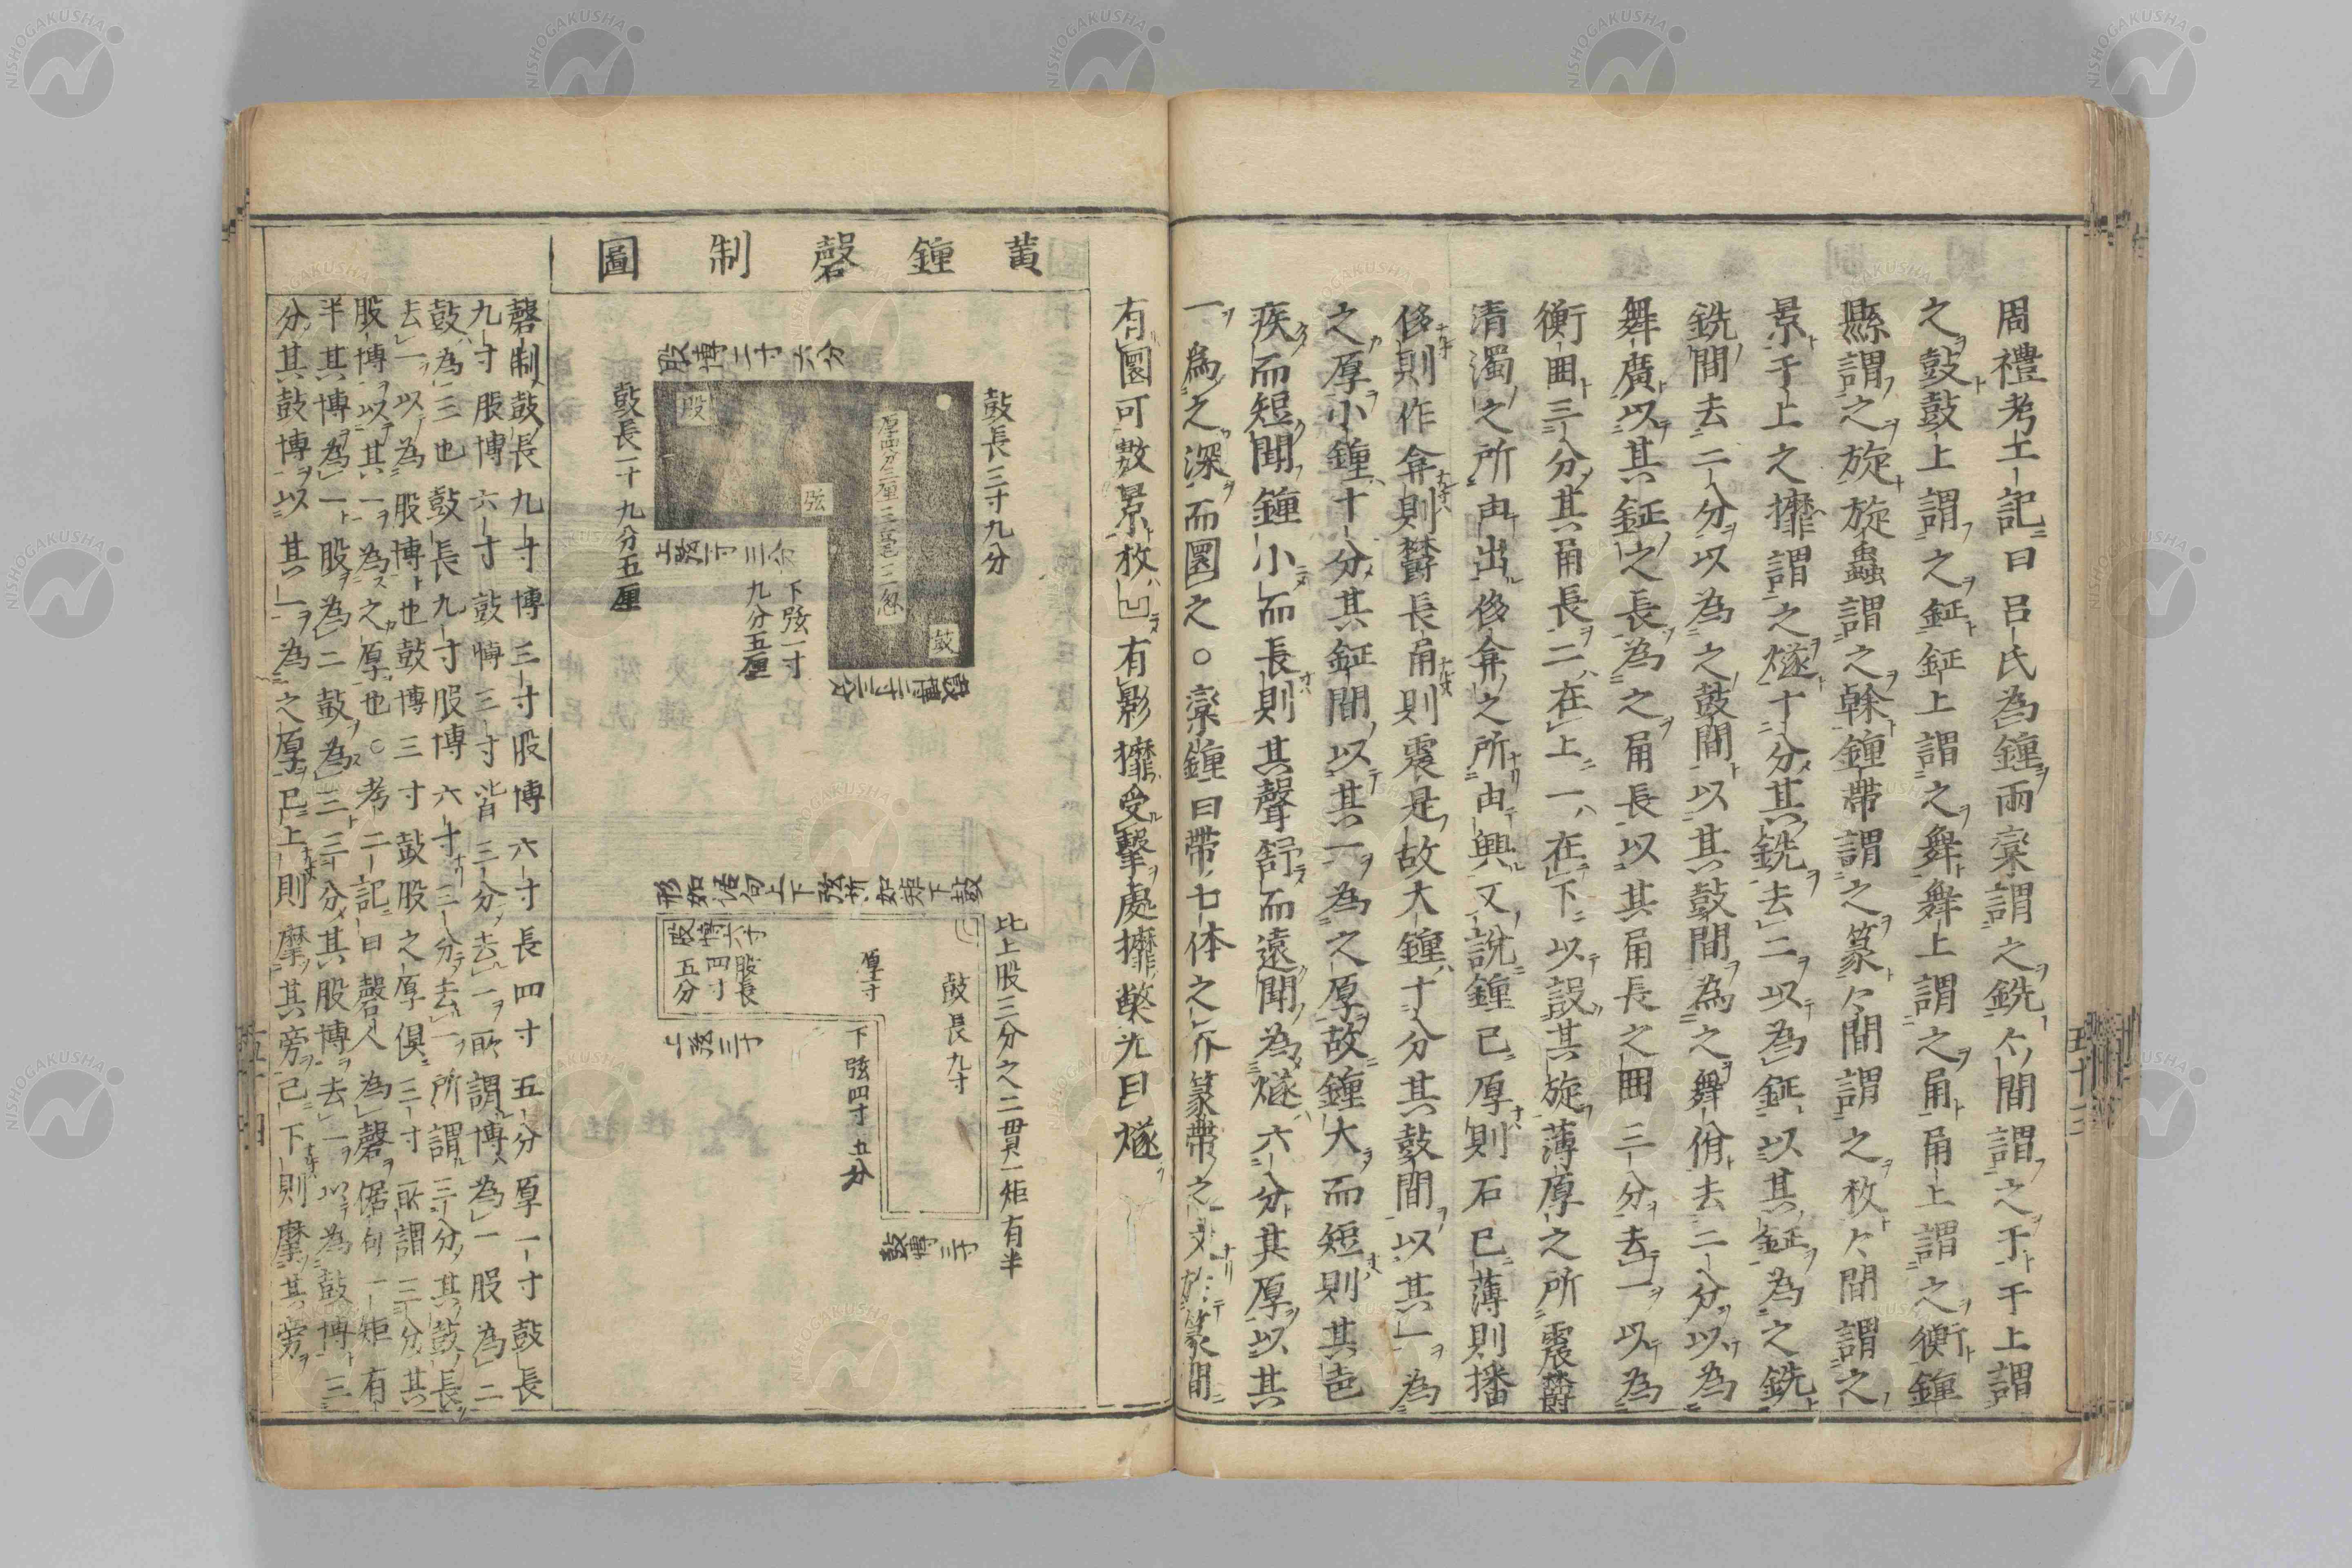 周禮考土記曰呂氏為鐘兩欒謂之銑々間謂之于于上謂
之鼓鼓上謂之鉦鉦上謂之舞舞上謂之甬甬上謂之衡鐘
縣謂之旋旋蟲謂之幹鐘帶謂之篆々間謂之枚々間謂之
景于上之攠謂之燧十分其銑去二以為鉦以其鉦為之銑
間去二分以為之鼓間以其鼓間為之舞脩去二分以為
舞廣以其鉦之長為之甬長以其甬長之囲三分去一以為
衡囲三分其甬長二在上一在下以設其旋薄厚之所震
清濁之所由出侈弇之所由興又說鐘已厚則石已薄則播
侈則作弇則欝長甬則震是故大鐘十分其鼓間以其一為
之厚小鐘十分其鉦間以其一為之厚故鐘大而短則其
疾而短聞鐘小而長則其聲舒而遠聞為燧六分其厚以其
一為之深而圜之○欒鐘曰帶七体之介篆帶之
有圜可數景枚凹有影攠受擊處攠獘光曰燧
黃鐘磬制圖
鼓長三寸九分
股博二寸六分
股
弦
鼓
鼓長一寸九分五厘
上弦一寸三分
下弦一寸
九分五厘
形如倨句上下弦
比上股三分之二貫一矩有半
鼓長九寸
厚一寸
股博六寸
股長
四寸
五分
上弦三寸
下弦四寸五分
鼓博三寸
磬制鼓長九寸博三寸股博六寸長四寸五分厚一寸鼓長
九寸股博六寸鼓博三寸皆三分去一所謂博為一股為二
鼓為三也鼓長九寸股博六寸三分去一所謂三分其鼓長
去一以為股博也鼓博三寸鼓股之厚俱三寸所謂三分其
股博以其一為之厚也○考二記曰磬人為磬倨句一矩有
半其博為一股為二鼓為三三分其股博去一以為鼓博三
分其鼓博以其一為之厚已上則摩其旁已下則摩其旁
五十三